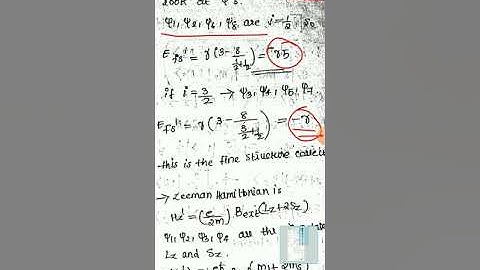 look at φ's.
φ1, φ2, φ6, φ8 are j=1/2, so
E fs^1 = γ(3 - 8/(1/2+1/2)) = -γ5
if j = 3/2 → φ3, φ4, φ5, φ7
E fs^1 = γ(3 - 8/(3/2+1/2)) = -γ
this is the fine structure
→ Zeeman Hamiltonian is
Hz' = (e/2m) Bext (Lz+2Sz)
φ1, φ2, φ3, φ4 are the
Lz and Sz.